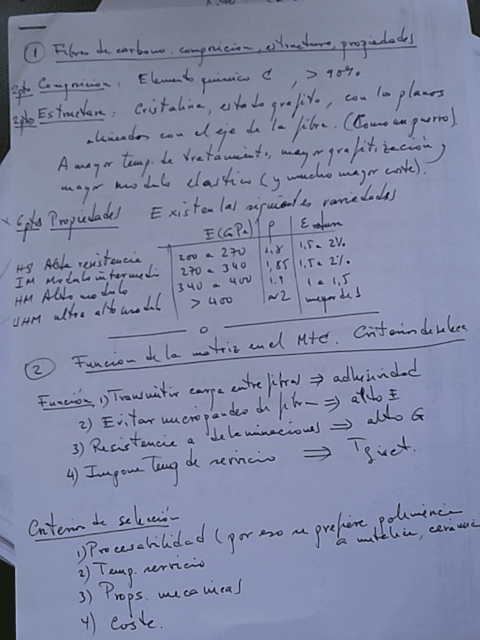 ① Fibras de carbono. composición, estructura, propiedades
2pto Composición: Elemento químico C, > 90%
2pto Estructura: Cristalina, estado grafito, con los planos
alineados con el eje de la fibra. (Como un puro).
A mayor temp. de tratamiento, mayor grafitización y
mayor modulo elastico (y mucho mayor coste).
6ptos Propiedades Existen las siguientes variedades
E(GPa) ρ Erotura
HS Alta resistencia 200 a 270 1,8 1,5 a 2%
IM Modulo intermedio 270 a 340 1,85 1,5 a 2%
HM Alto modulo 340 a 400 1.9 1 a 1,5
UHM ultra alto modul > 400 ≈2 menor de 1
② Funcion de la matriz en el MTC. Criterios de selecc
Función 1) Transmitir carga entre fibras ⇒ adhesividad
2) Evitar micropandeo de fibra ⇒ alto E
3) Resistencia a delaminaciones ⇒ alto G
4) Impone Temp de servicio ⇒ T
Criterios de selección
1) Procesabilidad (por eso se prefiere polimérica
a metálica, cerámica
2) Temp. servicio
3) Props. mecanicas
4) Coste.